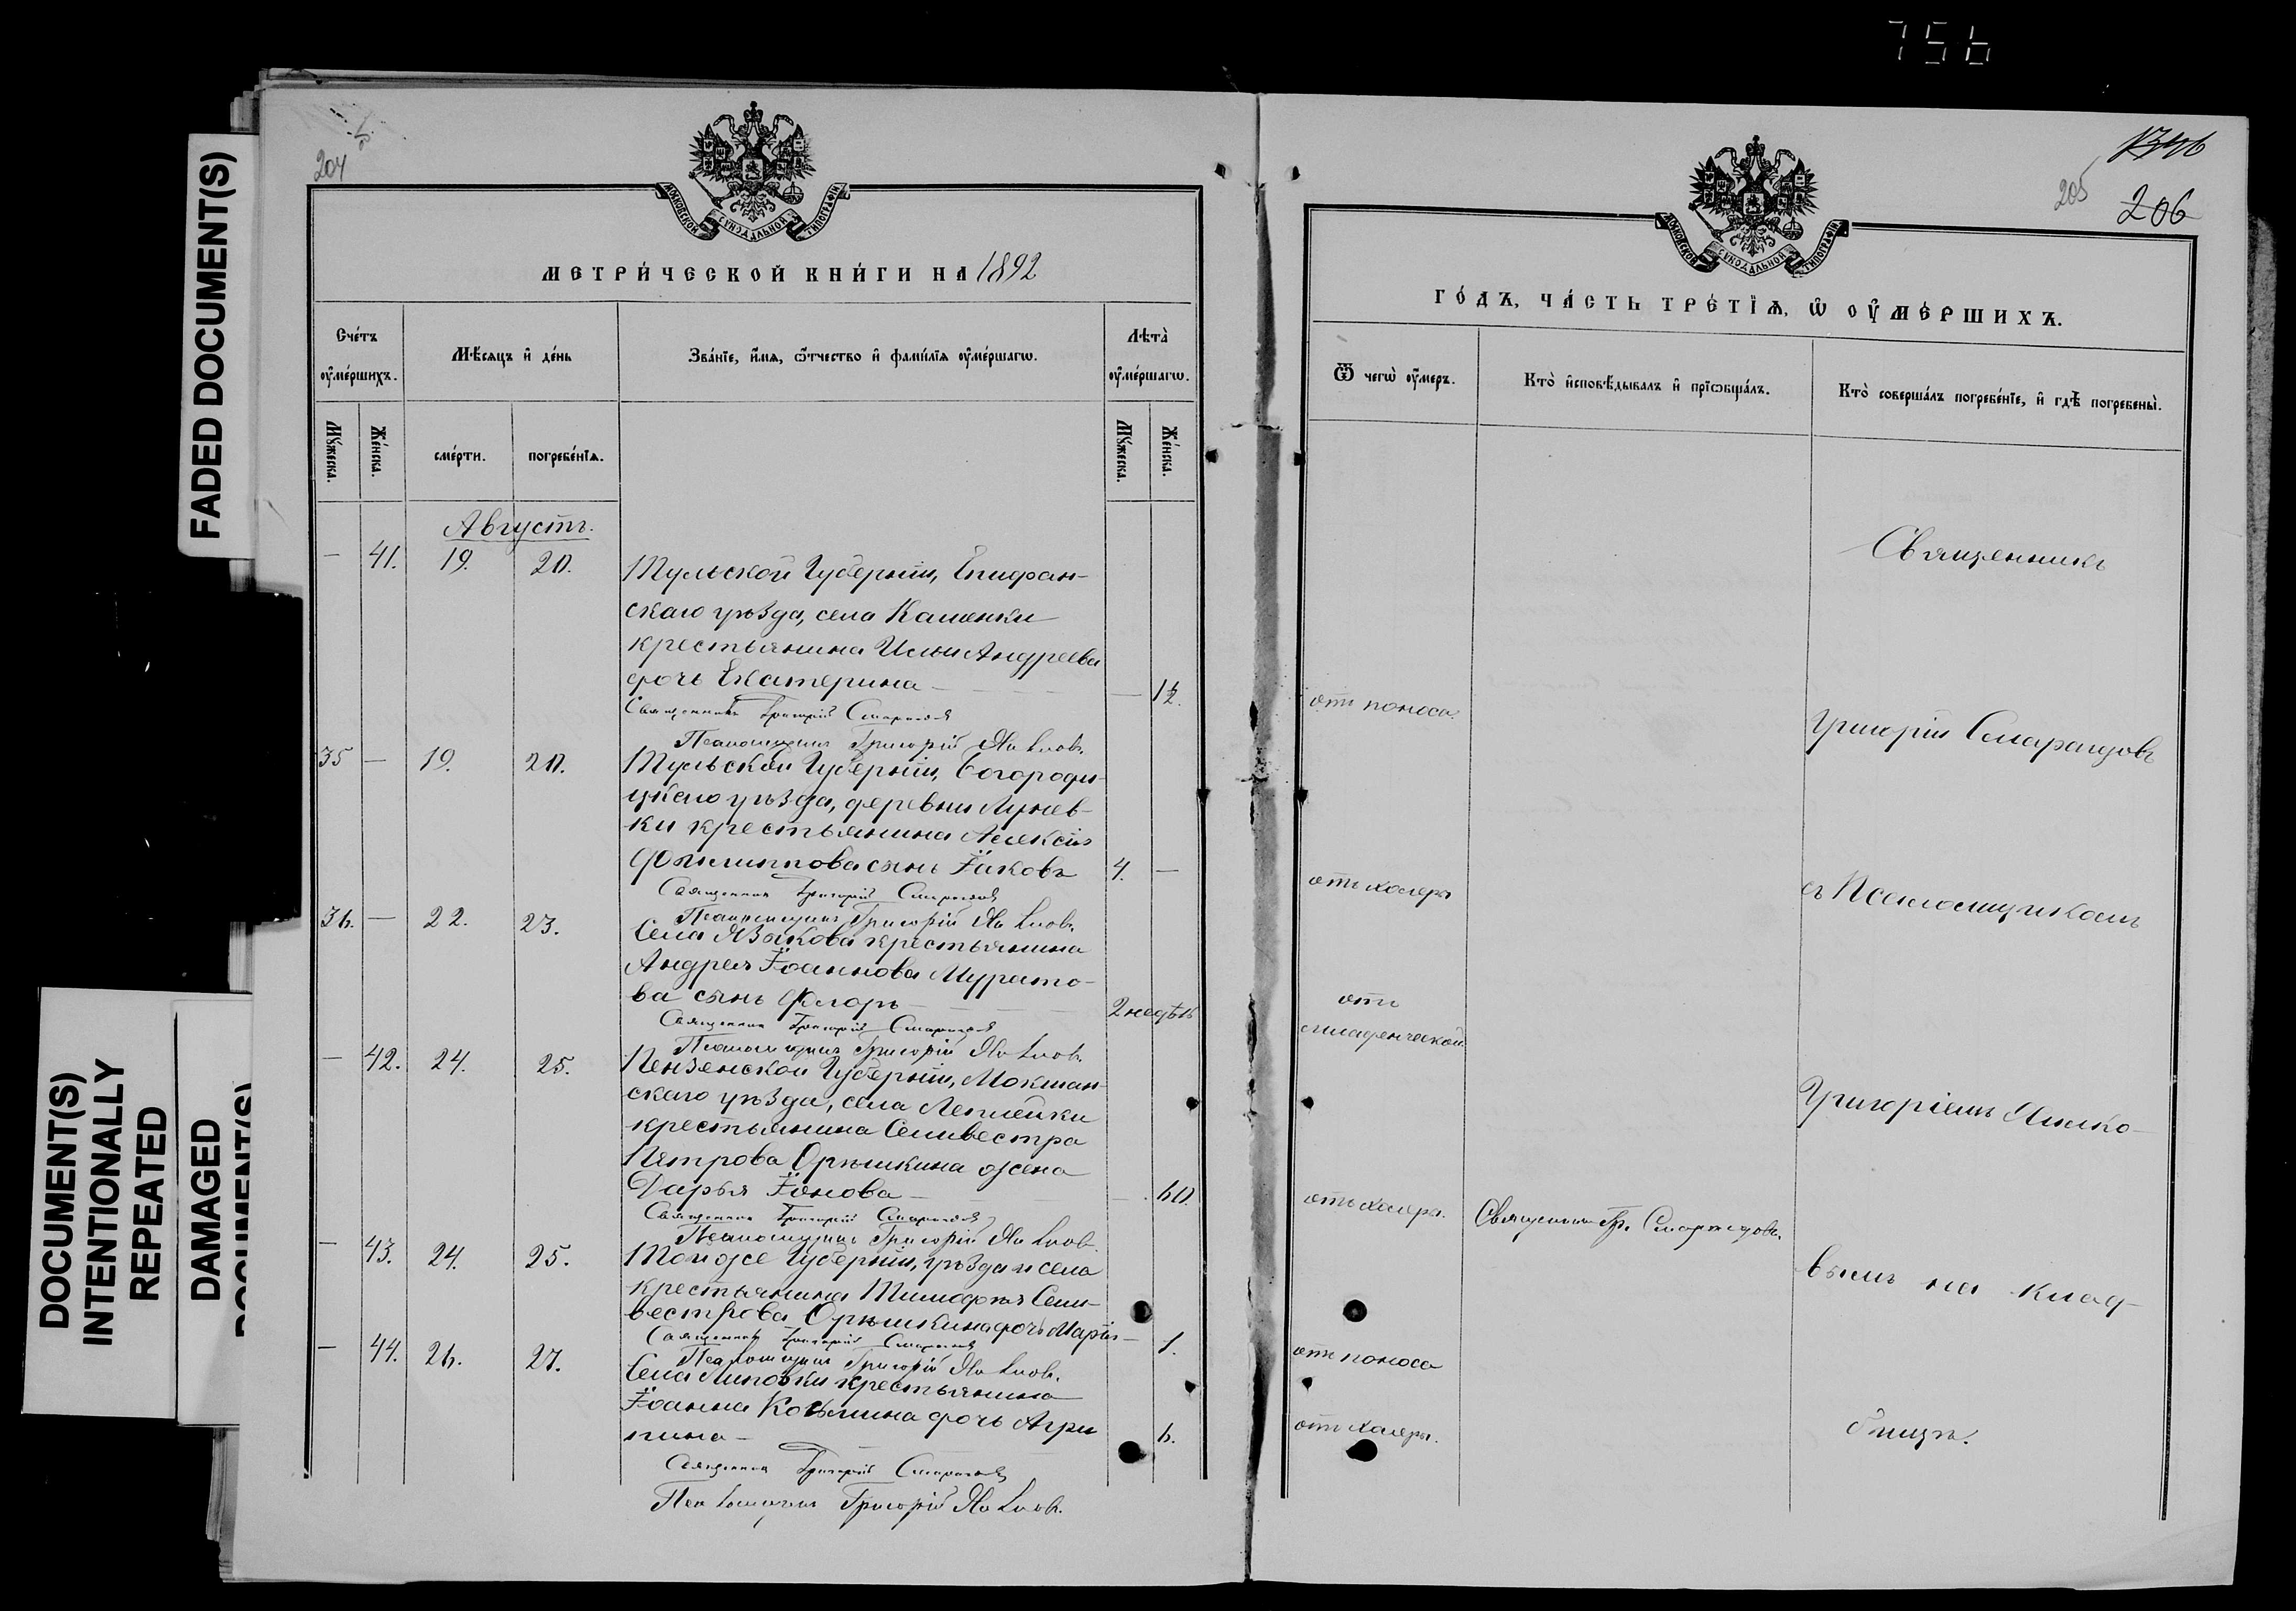 756
FADED DOCUMENT(S)
DOCUMENT(S)
INTENTIONALLY
REPEATED
DAMAGED
DOCUMENT(S)
204
МОСКОВСКОЙ СУНОДАЛЬНОЙ ТИПОГРАФІИ
МЕТРИ́ЧЕСКОЙ КНИ́ГИ НА 1892
Сче́тъ ᲂу҆ме́ршихъ.
Мѣ́сяцъ и҆ де́нь
Зва́нїе, и҆́мѧ, ѻ҆́тчество и҆ фами́лїѧ ᲂу҆ме́ршагѡ.
Лѣта̀ ᲂу҆ме́ршагѡ.
Мꙋ́жеска.
Же́нска.
сме́рти.
погребе́нїѧ.
Мꙋ́жеска.
Же́нска.
Августъ.
— 41. 19. 20. Тульской Губерніи, Епифан-
скаго уѣзда, села Каменки
крестьянина Ильи Андреева
дочь Екатерина — — 1½.
Священникъ Григорій Смарагдовъ
Псаломщикъ Григорій Яковлевъ.
35 — 19. 20. Тульской Губерніи, Богороди-
цкаго уѣзда, деревни Лунев-
ки крестьянина Алексія
Филиппова сынъ Іаковъ 4. —
Священникъ Григорій Смарагдовъ
Псаломщикъ Григорій
36. — 22. 23. Села Языкова крестьянина
Андрея Іоаннова Мурато-
ва сынъ Флоръ — 2 недѣль
Священникъ Григорій Смарагдовъ
Псаломщикъ Григорій
— 42. 24. 25. Пензенской Губерніи, Мокшан-
скаго уѣзда, села
крестьянина Селивестра
Петрова Орѣшкина жена
Дарья Іонова — — 60.
Священникъ Григорій Смарагдовъ
Псаломщикъ Григорій
— 43. 24. 25. Той же Губерніи, уѣзда и села
крестьянина Тимофея Сели-
вестрова Орѣшкина дочь Марія — 1.
Священникъ Григорій Смарагдовъ
Псаломщикъ Григорій
— 44. 26. 27. Села Липовки крестьянина
Іоанна Козьмина дочь Агри
пина — 6.
Священникъ Григорій Смарагдовъ
Псаломщикъ Григорій
205
206
МОСКОВСКОЙ СУНОДАЛЬНОЙ ТИПОГРАФІИ
ГО́ДЪ, ЧА́СТЬ ТРЕ́ТЇѦ, Ѡ҆ ОУ҆МЕ́РШИХЪ.
Ѿ чегѡ̀ ᲂу҆́меръ.
Кто̀ и҆сповѣ́дывалъ и҆ прїѡбща́лъ.
Кто̀ соверша́лъ погребе́нїе, и҆ гдѣ̀ погребены̀.
Священникъ
отъ поноса.
Григорій Смарагдовъ
отъ холеры
съ Псаломщикомъ
отъ
младенческой.
Григоріемъ
отъ холеры. Священникъ Гр. Смарагдовъ.
вымъ на клад-
отъ поноса
отъ холеры.
бищѣ.